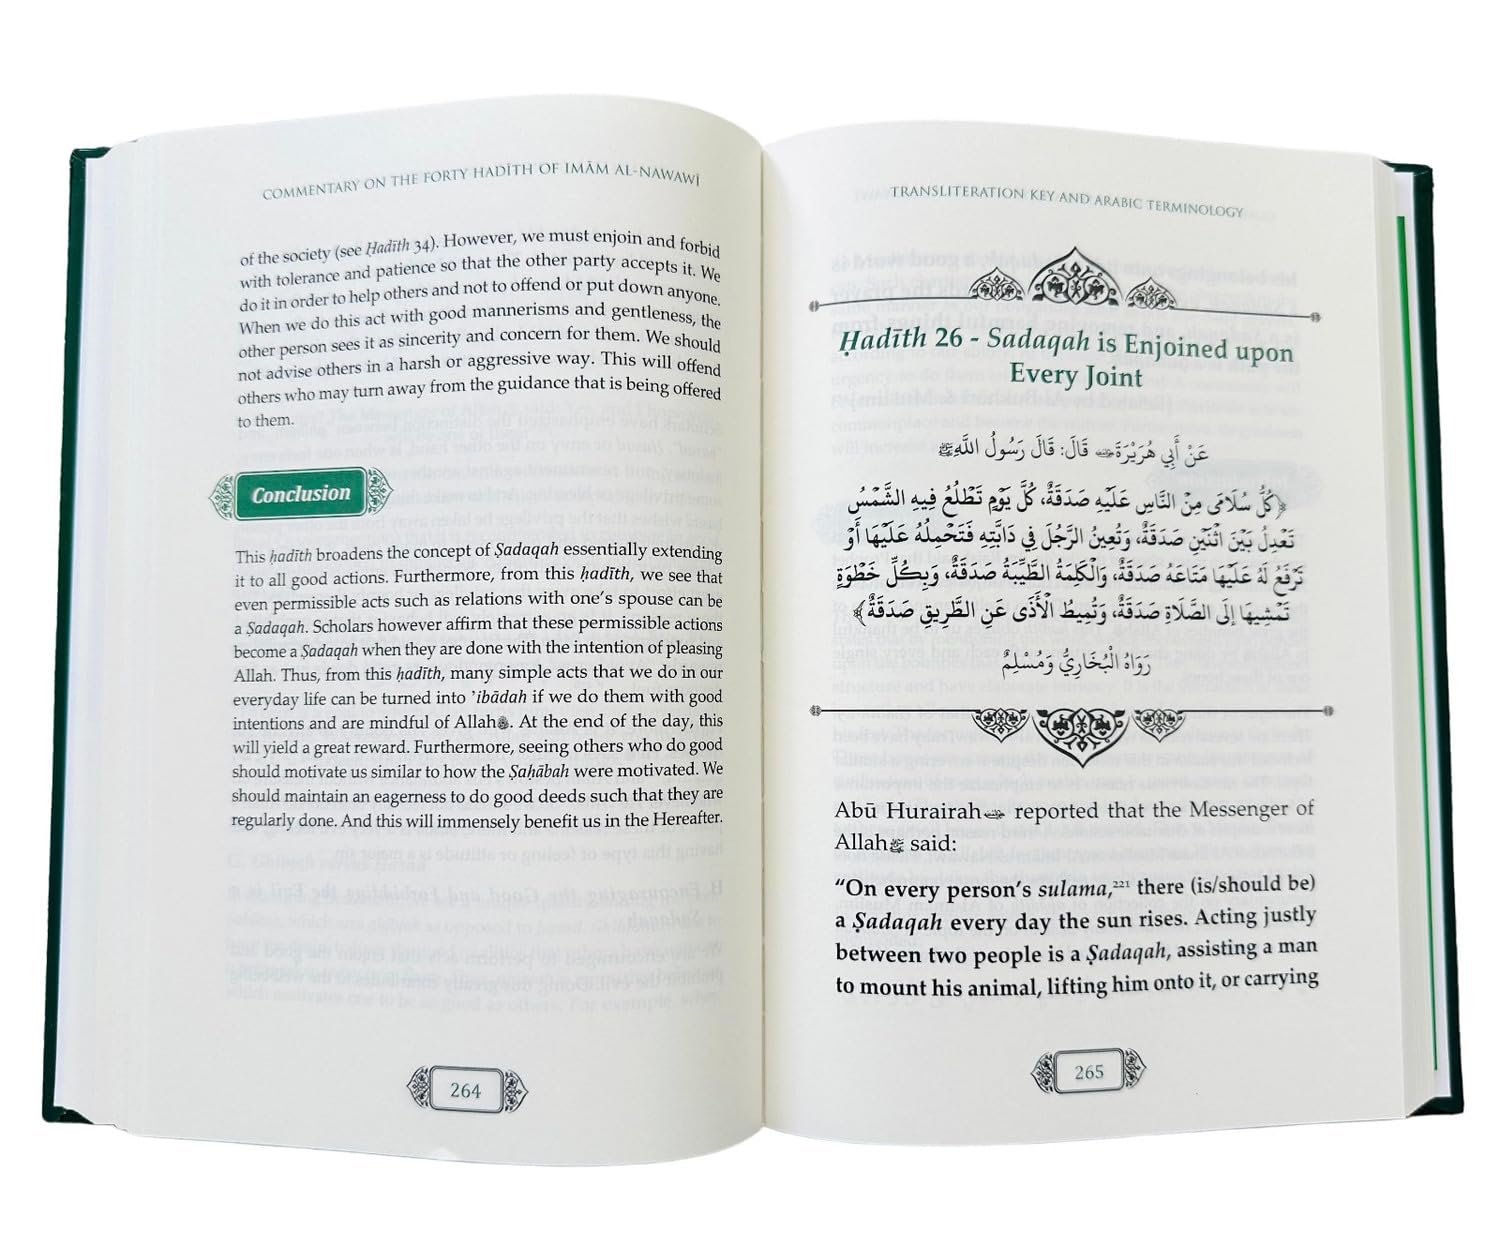 COMMENTARY ON THE FORTY HADĪTH OF IMĀM AL-NAWAWĪ
of the society (see Ḥadīth 34). However, we must enjoin and forbid
with tolerance and patience so that the other party accepts it. We
do it in order to help others and not to offend or put down anyone.
When we do this act with good mannerisms and gentleness, the
other person sees it as sincerity and concern for them. We should
not advise others in a harsh or aggressive way. This will offend
others who may turn away from the guidance that is being offered
to them.
Conclusion
This ḥadīth broadens the concept of Ṣadaqah essentially extending
it to all good actions. Furthermore, from this ḥadīth, we see that
even permissible acts such as relations with one's spouse can be
a Ṣadaqah. Scholars however affirm that these permissible actions
become a Ṣadaqah when they are done with the intention of pleasing
Allah. Thus, from this ḥadīth, many simple acts that we do in our
everyday life can be turned into 'ibādah if we do them with good
intentions and are mindful of Allahﷻ. At the end of the day, this
will yield a great reward. Furthermore, seeing others who do good
should motivate us similar to how the Ṣaḥābah were motivated. We
should maintain an eagerness to do good deeds such that they are
regularly done. And this will immensely benefit us in the Hereafter.
264
TRANSLITERATION KEY AND ARABIC TERMINOLOGY
Ḥadīth 26 - Sadaqah is Enjoined upon
Every Joint
عَنْ أَبِي هُرَيْرَةَ قَالَ: قَالَ رَسُولُ اللَّهِ ﷺ
﴿كُلُّ سُلَامَى مِنَ النَّاسِ عَلَيْهِ صَدَقَةٌ، كُلَّ يَوْمٍ تَطْلُعُ فِيهِ الشَّمْسُ
تَعْدِلُ بَيْنَ اثْنَيْنِ صَدَقَةٌ، وَتُعِينُ الرَّجُلَ فِي دَابَّتِهِ فَتَحْمِلُهُ عَلَيْهَا أَوْ
تَرْفَعُ لَهُ عَلَيْهَا مَتَاعَهُ صَدَقَةٌ، وَالْكَلِمَةُ الطَّيِّبَةُ صَدَقَةٌ، وَبِكُلِّ خَطْوَةٍ
تَمْشِيهَا إِلَى الصَّلَاةِ صَدَقَةٌ، وَتُمِيطُ الْأَذَى عَنِ الطَّرِيقِ صَدَقَةٌ﴾
رَوَاهُ الْبُخَارِيُّ وَمُسْلِمٌ
Abū Hurairah reported that the Messenger of
Allahﷺ said:
"On every person's sulama,²²¹ there (is/should be)
a Ṣadaqah every day the sun rises. Acting justly
between two people is a Ṣadaqah, assisting a man
to mount his animal, lifting him onto it, or carrying
265